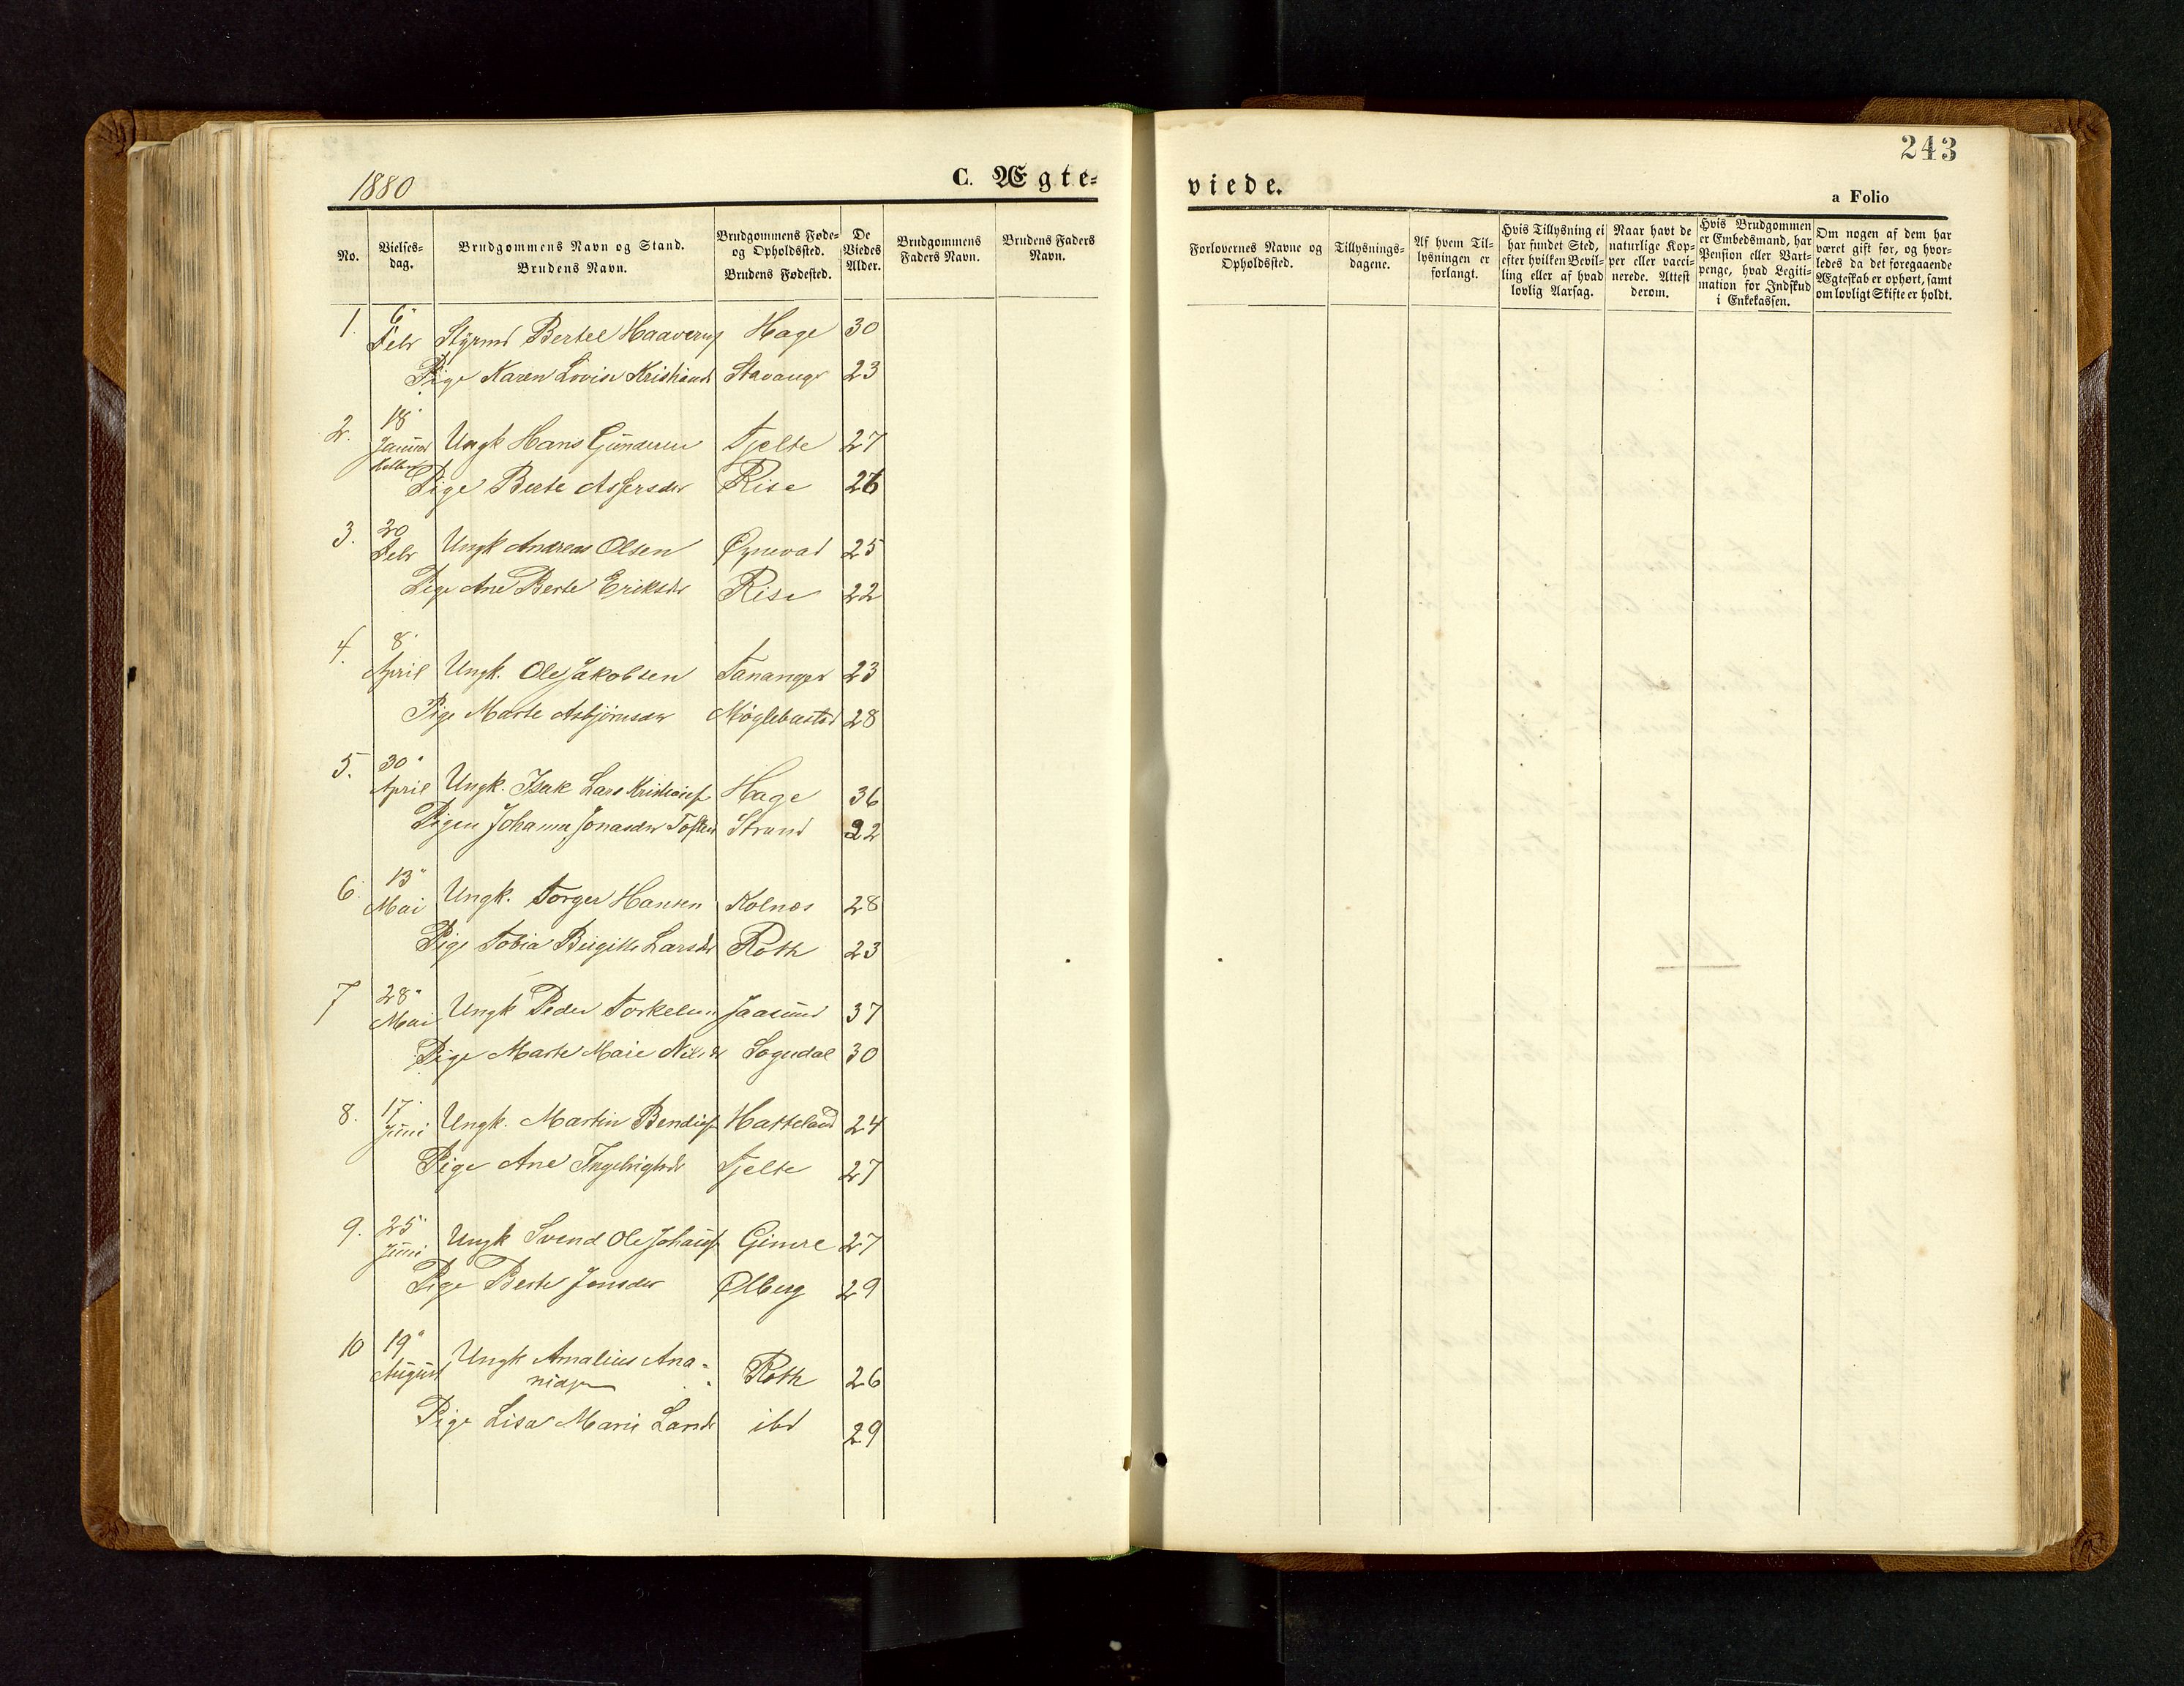 243
1880
C. Ægte-
viede.
a Folio
No.
Vielses-
dag.
Brudgommens Navn og Stand.
Brudens Navn.
Brudgommens Føde-
og Opholdssted.
Brudens Fødested.
De
Viedes
Alder.
Brudgommens
Faders Navn.
Brudens Faders
Navn.
Forlovernes Navne og
Opholdssted.
Tillysnings-
dagene.
Af hvem Til-
lysningen er
forlangt.
Hvis Tillysning ei
har fundet Sted,
efter hvilken Bevil-
ling eller af hvad
lovlig Aarsag.
Naar havt de
naturlige Kop-
per eller vacci-
nerede. Attest
derom.
Hvis Brudgommen
er Embedsmand, har
Pension eller Vart-
penge, hvad Legiti-
mation for Indskud
i Enkekassen.
Om nogen af dem har
været gift før, og hvor-
ledes da det foregaaende
Ægteskab er ophørt, samt
om lovligt Skifte er holdt.
1. 6 Febr Styrmd Bertel Haavers Hage 30
Pige Karen Lovise Kristiansd Stavangr 23
2. 18 Januar Ungk Hans Gundersen Tjelte 27
Pige Berte Assersdr Rise 26
3. 20 Febr Ungk Andreas Olsen Øynevad 25
Pige Ane Berte Eriksdr Rise 22
4. 8 April Ungk. Ole Jakobsen Tananger 23
Pige Marte Asbjørnsdr Møglebustad 28
5. 30 April Ungk. Isak Lars Hage 36
Pigen Johanne Jonasdr Strand 22
6. 13 Mai Ungk. Torger Hansen Kolnes 28
Pige Tobia Birgitte Larsdr Roth 23
7 28 Mai Ungk Peder Torkelsen Jaasund 37
Pige Marte Marie Nilsdr Sogndal 30
8. 17 Juni Ungk. Martin Bendigs Hatteland 24
Pige Ane Ingebrigtsdr Tjelte 27
9. 25 Juni Ungk Svend Ole Johans Gimre 27
Pige Berte Jonsdr Ølberg 29
10 19 August Ungk Amalius Ana-
nias Roth 26
Pige Lisa Marie Larsdr ibd 29